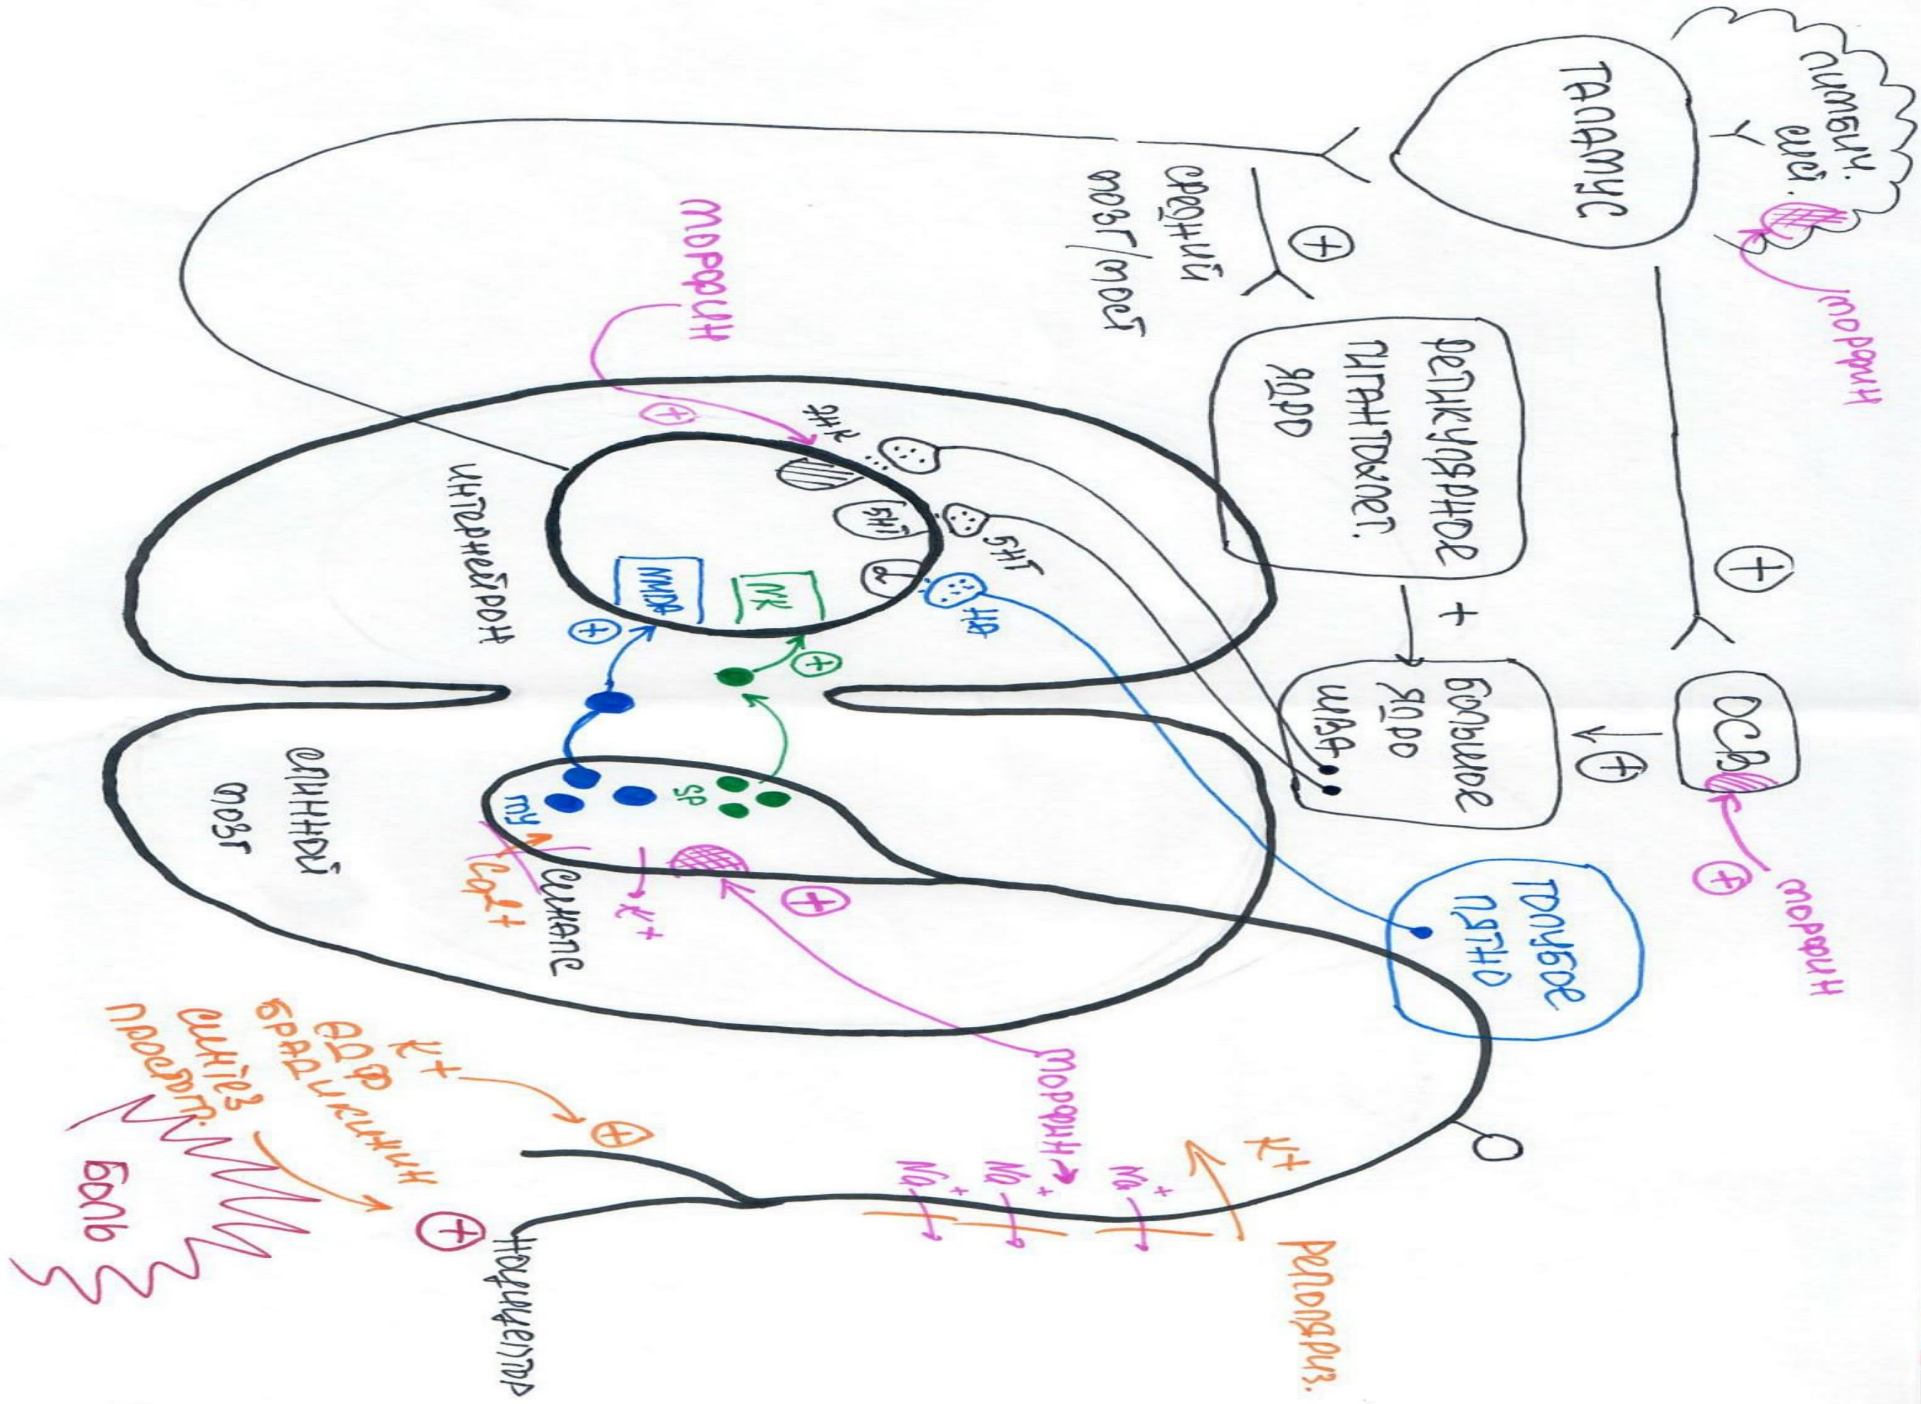 лимбич.
сист.
морфин
таламус
+
+
средний
мозг/мост
ретикулярное
гигантоклет.
ядро
+
большое
ядро
шва
+
ОСВ
морфин
+
голубое
пятно
морфин
+
энк
5НТ
5НТ
α
НА
NMDA
NK
+
+
интернейрон
спинной
мозг
гл
SP
Ca2+
синапс
K+
+
морфин
K+
Na+
Na+
Na+
реполяриз.
K+
АДФ
брадикинин
синтез
простагл.
+
+
боль
ноцицептор